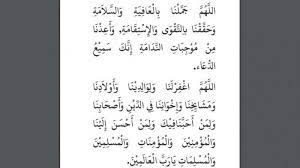 اللَّهُمَّ جَمِّلْنَا بِالْعَافِيَةِ وَالسَّلَامَةِ
وَحَقِّقْنَا بِالتَّقْوَى وَالْإِسْتِقَامَةِ، وَأَعِذْنَا
مِنْ مُوجِبَاتِ النَّدَامَةِ إِنَّكَ سَمِيعُ
الدُّعَاءِ.
اللَّهُمَّ اغْفِرْ لَنَا وَلِوَالِدِيْنَا وَأَوْلَادِنَا
وَمَشَايِخِنَا وَإِخْوَانِنَا فِي الدِّيْنِ وَأَصْحَابِنَا
وَلِمَنْ أَحَبَّنَا فِيكَ وَلِمَنْ أَحْسَنَ إِلَيْنَا
وَالْمُؤْمِنِيْنَ وَالْمُؤْمِنَاتِ وَالْمُسْلِمِيْنَ
وَالْمُسْلِمَاتِ يَارَبَّ الْعَالَمِيْنَ.